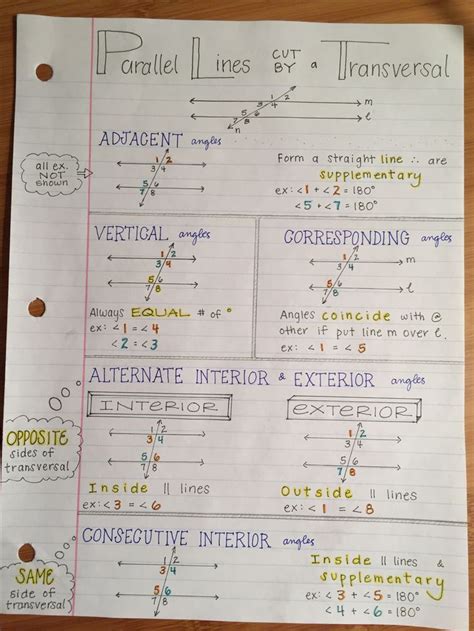 Parallel Lines CUT BY a Transversal
1 2
3 4
5 6
7 8
m
l
n
ADJACENT angles
all ex. NOT shown
1 2
3 4
5 6
7 8
Form a straight line ∴ are
supplementary
ex: <1 + <2 = 180°
<5 + <7 = 180°
VERTICAL angles
1 2
3 4
5 6
7 8
Always EQUAL # of °
ex: <1 = <4
<2 = <3
CORRESPONDING angles
1 2
3 4
m
5 6
7 8
l
Angles coincide with @
other if put line m over l.
ex: <1 = <5
ALTERNATE INTERIOR & EXTERIOR angles
OPPOSITE
sides of
transversal
INTERIOR
1 2
3 4
5 6
7 8
Inside || lines
ex: <3 = <6
EXTERIOR
1 2
3 4
5 6
7 8
Outside || lines
ex: <1 = <8
CONSECUTIVE INTERIOR angles
SAME
side of
transversal
1 2
3 4
5 6
7 8
Inside || lines &
supplementary
ex: <3 + <5 = 180°
<4 + <6 = 180°